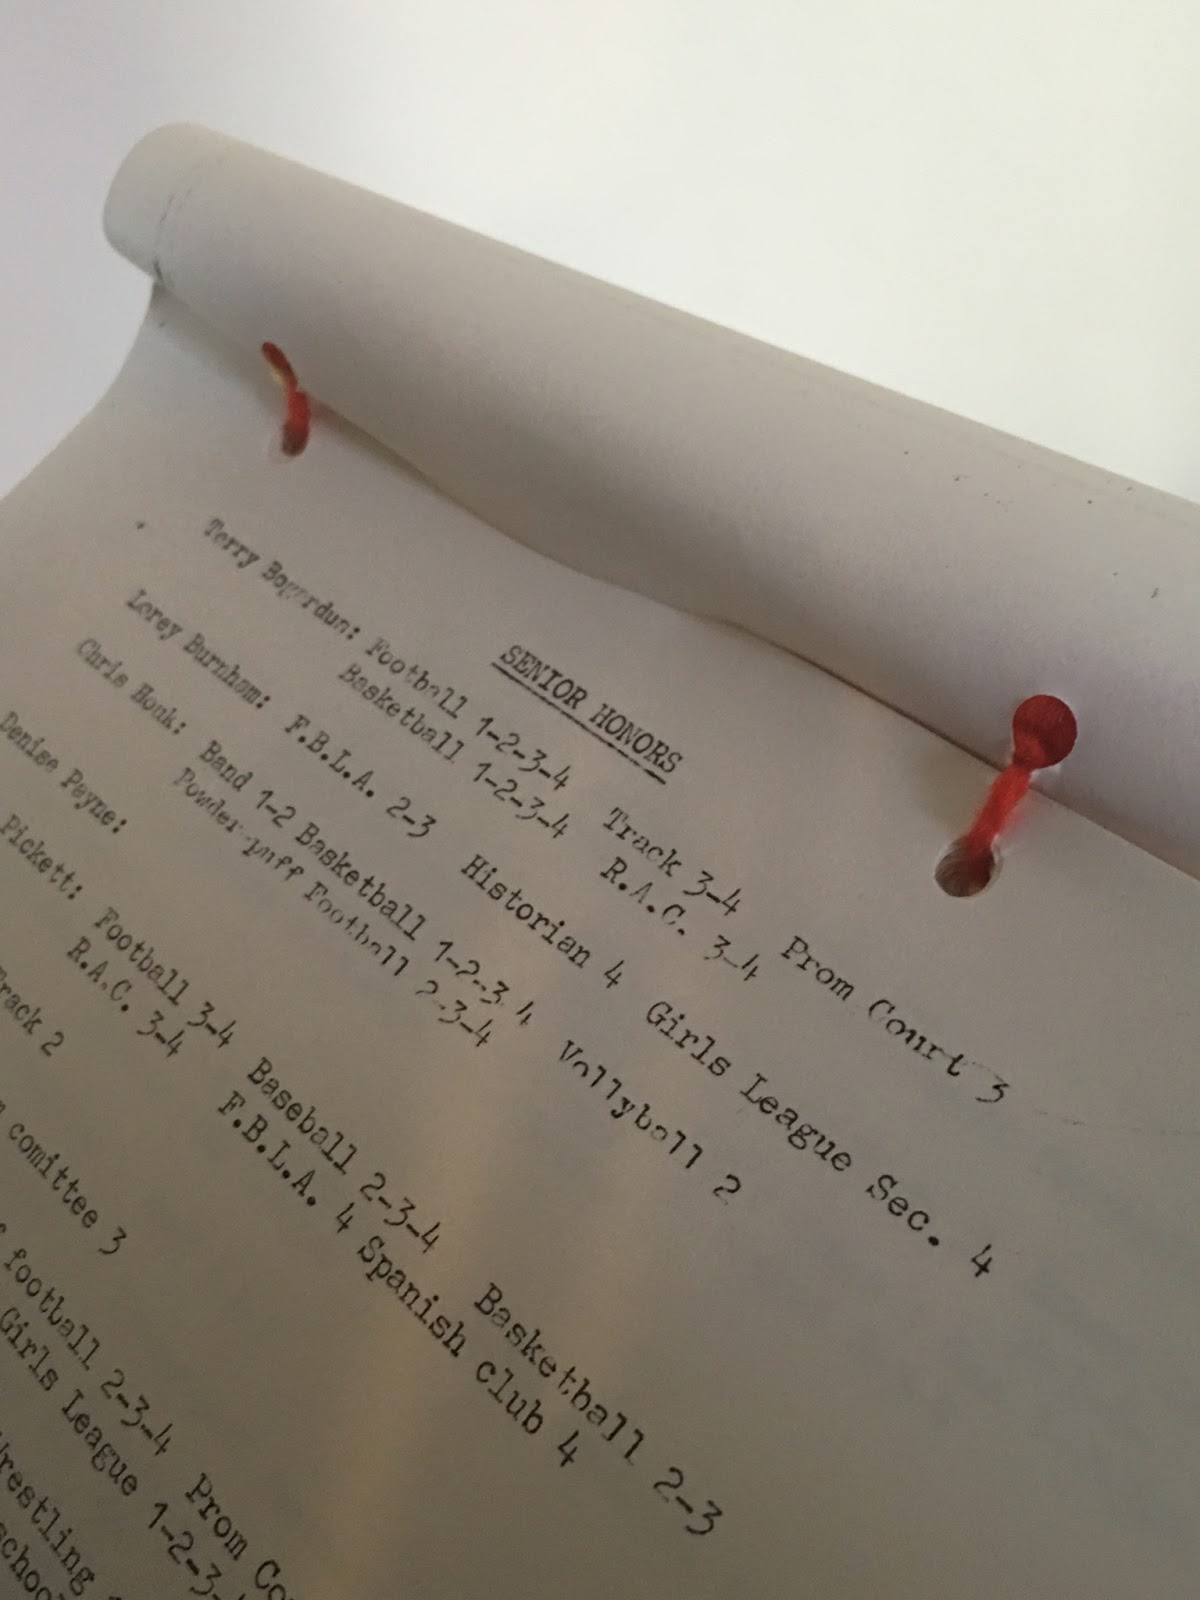 SENIOR HONORS
Terry Bogardun: Football 1-2-3-4 Track 3-4 Prom Court 3
Basketball 1-2-3-4 R.A.C. 3-4
Lorey Burnham: F.B.L.A. 2-3 Historian 4 Girls League Sec. 4
Chris Houk: Band 1-2 Basketball 1-2-3 4 Vollyball 2
Powder-puff Football 2-3-4
Denise Payne:
Pickett: Football 3-4 Baseball 2-3-4 Basketball 2-3
R.A.C. 3-4 F.B.L.A. 4 Spanish club 4
Track 2
comittee 3
football 2-3-4 Prom Co
Girls League 1-2-3-
Wrestling